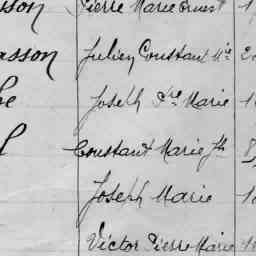 Pierre Marie Ernest
asson Julien Constant Mie
Joseph Fse Marie
Constant Marie Jh
Joseph Marie
Victor Pierre Marie